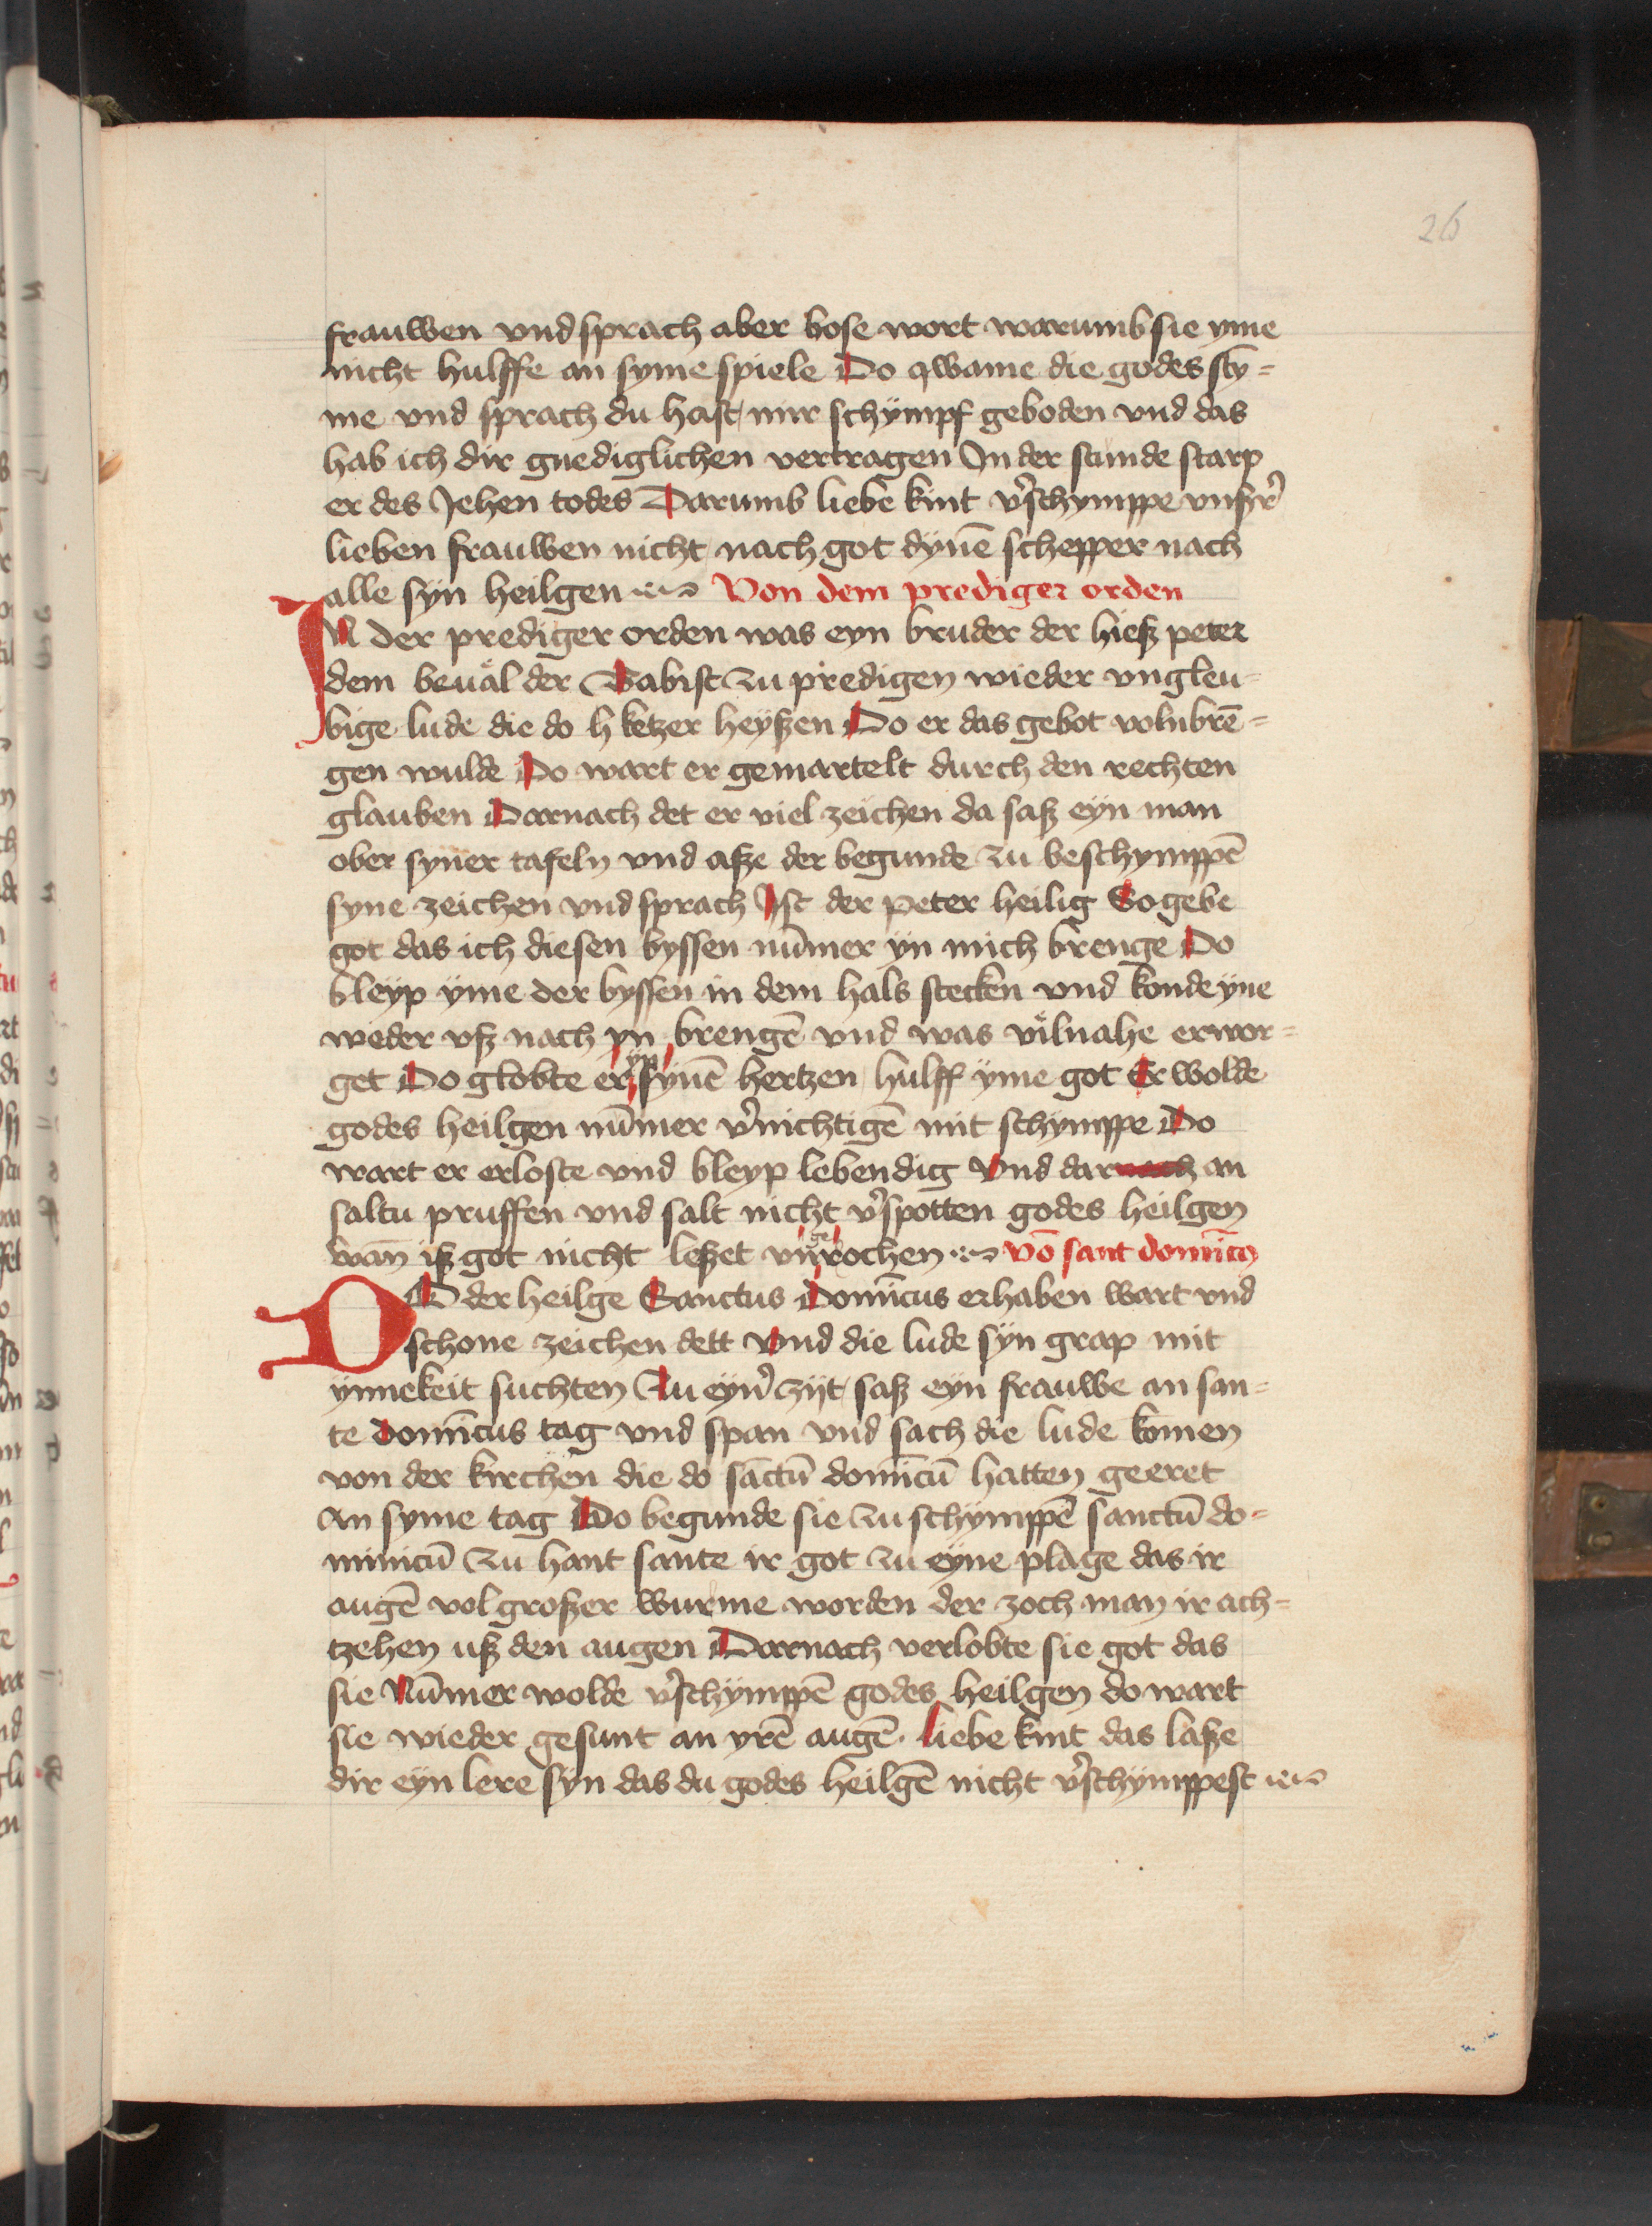 26
frauwen vnd sprach aber bose wort warumb sie yme
nicht hulffe an syme spiele Do qwame die godes sty̅=
me vnd sprach du hast mir schympf geboden vnd das
hab ich dir gnediglichen vertragen In der stunde starp
er des Jehen todes Darumb liebe kint v̓schymppe vnsyr̓
lieben frauwen nicht nach got dyne̅ schepper nach
alle syn heilgen Von dem prediger orden
IN der prediger orden was eyn bruder der hiesz peter
dem beual der Babist zu predigen wieder vngleu=
bige lude die do h ketzer heyszen Do er das gebot volnbre̅=
gen wulde Do wart er gemartelt durch den rechten
glauben Darnach det er viel zeichen da sasz eyn man
ober syner tafeln vnd asze der begunde zu beschymppe̅
syne zeichen vnd sprach Ist der peter heilig So gebe
got das ich diesen byssen nu̅mer yn mich brenge Do
bleyp yme der byssen in dem hals stecken vnd konde yne
weder vsz nach yn brenge̅ vnd was vilnahe erwor=
get Do globte er yn syne̅ hertzen hulff yme got Er wolde
godes heilgen nu̅mer v̓nichtige̅ mit schymppe Do
wart er erloste vnd bleyp lebendig Vnd darnach an
saltu pruffen vnd salt nicht v̓spotten godes heilgen
wan̅ isz got nicht leszet vngerochen vo̅ sant domi̅co
DO der heilge Sanctus Domi̅cus erhaben wart vnd
schone zeichen dett Vnd die lude syn grap mit
ynnekeit suchten Zu eyn̓ zijt sasz eyn frauwe an san=
te domi̅cus tag vnd span vnd sach die lude komen
von der kirchen die do sa̅ctu̅ domi̅cu̅ hatten geeret
an syme tag Do begunde sie zu schymppe̅ sanctu̅ do=
minicu̅ zu hant sante ir got zu eyne plage das ir
auge̅ vol groszer wurme worden der zoch man ir ach=
tzehen usz den augen Darnach verlobte sie got das
sie Nu̅mer wolde v̓schymppe̅ godes heilgen do wart
sie wieder gesunt an yre̅ auge̅. liebe kint das lasze
dir eyn lere syn das du godes heilge̅ nicht v̓schymppest